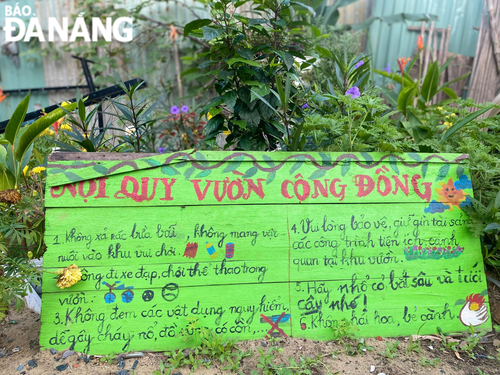 BÁO
ĐANANG
NỘI QUY VƯỜN CÔNG ĐỒNG
1. Không xả rác bừa bãi, không mang vật
nuôi vào khu vui chơi
Không đi xe đạp, chơi thể thao trong
vườn.
3. Không đem các vật dụng nguy hiểm,
dễ gây cháy nổ, đồ uống có cồn,...
4. Vui lòng bảo vệ, giữ gìn tài sản,
các công trình tiện ích cảnh
quan tại khu vườn.
5. Hãy nhớ có bắt sâu và tưới
cây nhé!
6. Không hái hoa, bẻ cành